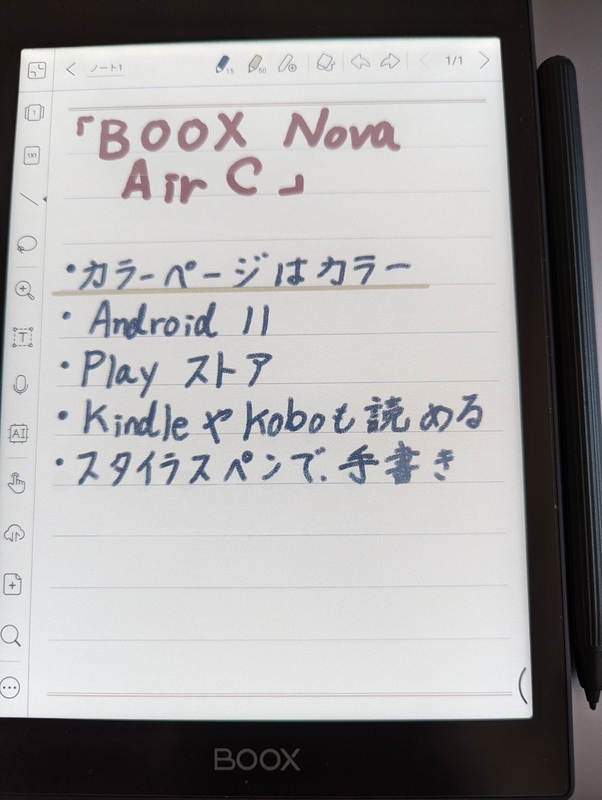 ノート1
15
50
1/1
「BOOX Nova
Air C」
・カラーページはカラー
・Android 11
・Play ストア
・KindleやKoboも読める
・スタイラスペンで.手書き
1
1X1
T
AI
BOOX